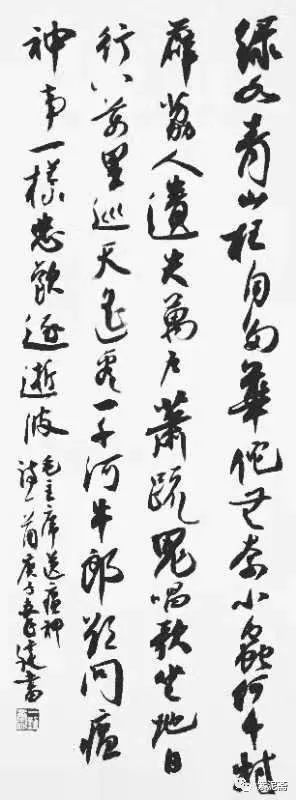 綠水青山枉自多華佗无奈小蟲何千村
薜荔人遺矢萬户蕭疏鬼唱歌坐地日
行八萬里巡天遥看一千河牛郎欲問瘟
神事一樣悲歡逐逝波
毛主席送瘟神
诗一首庚子建書